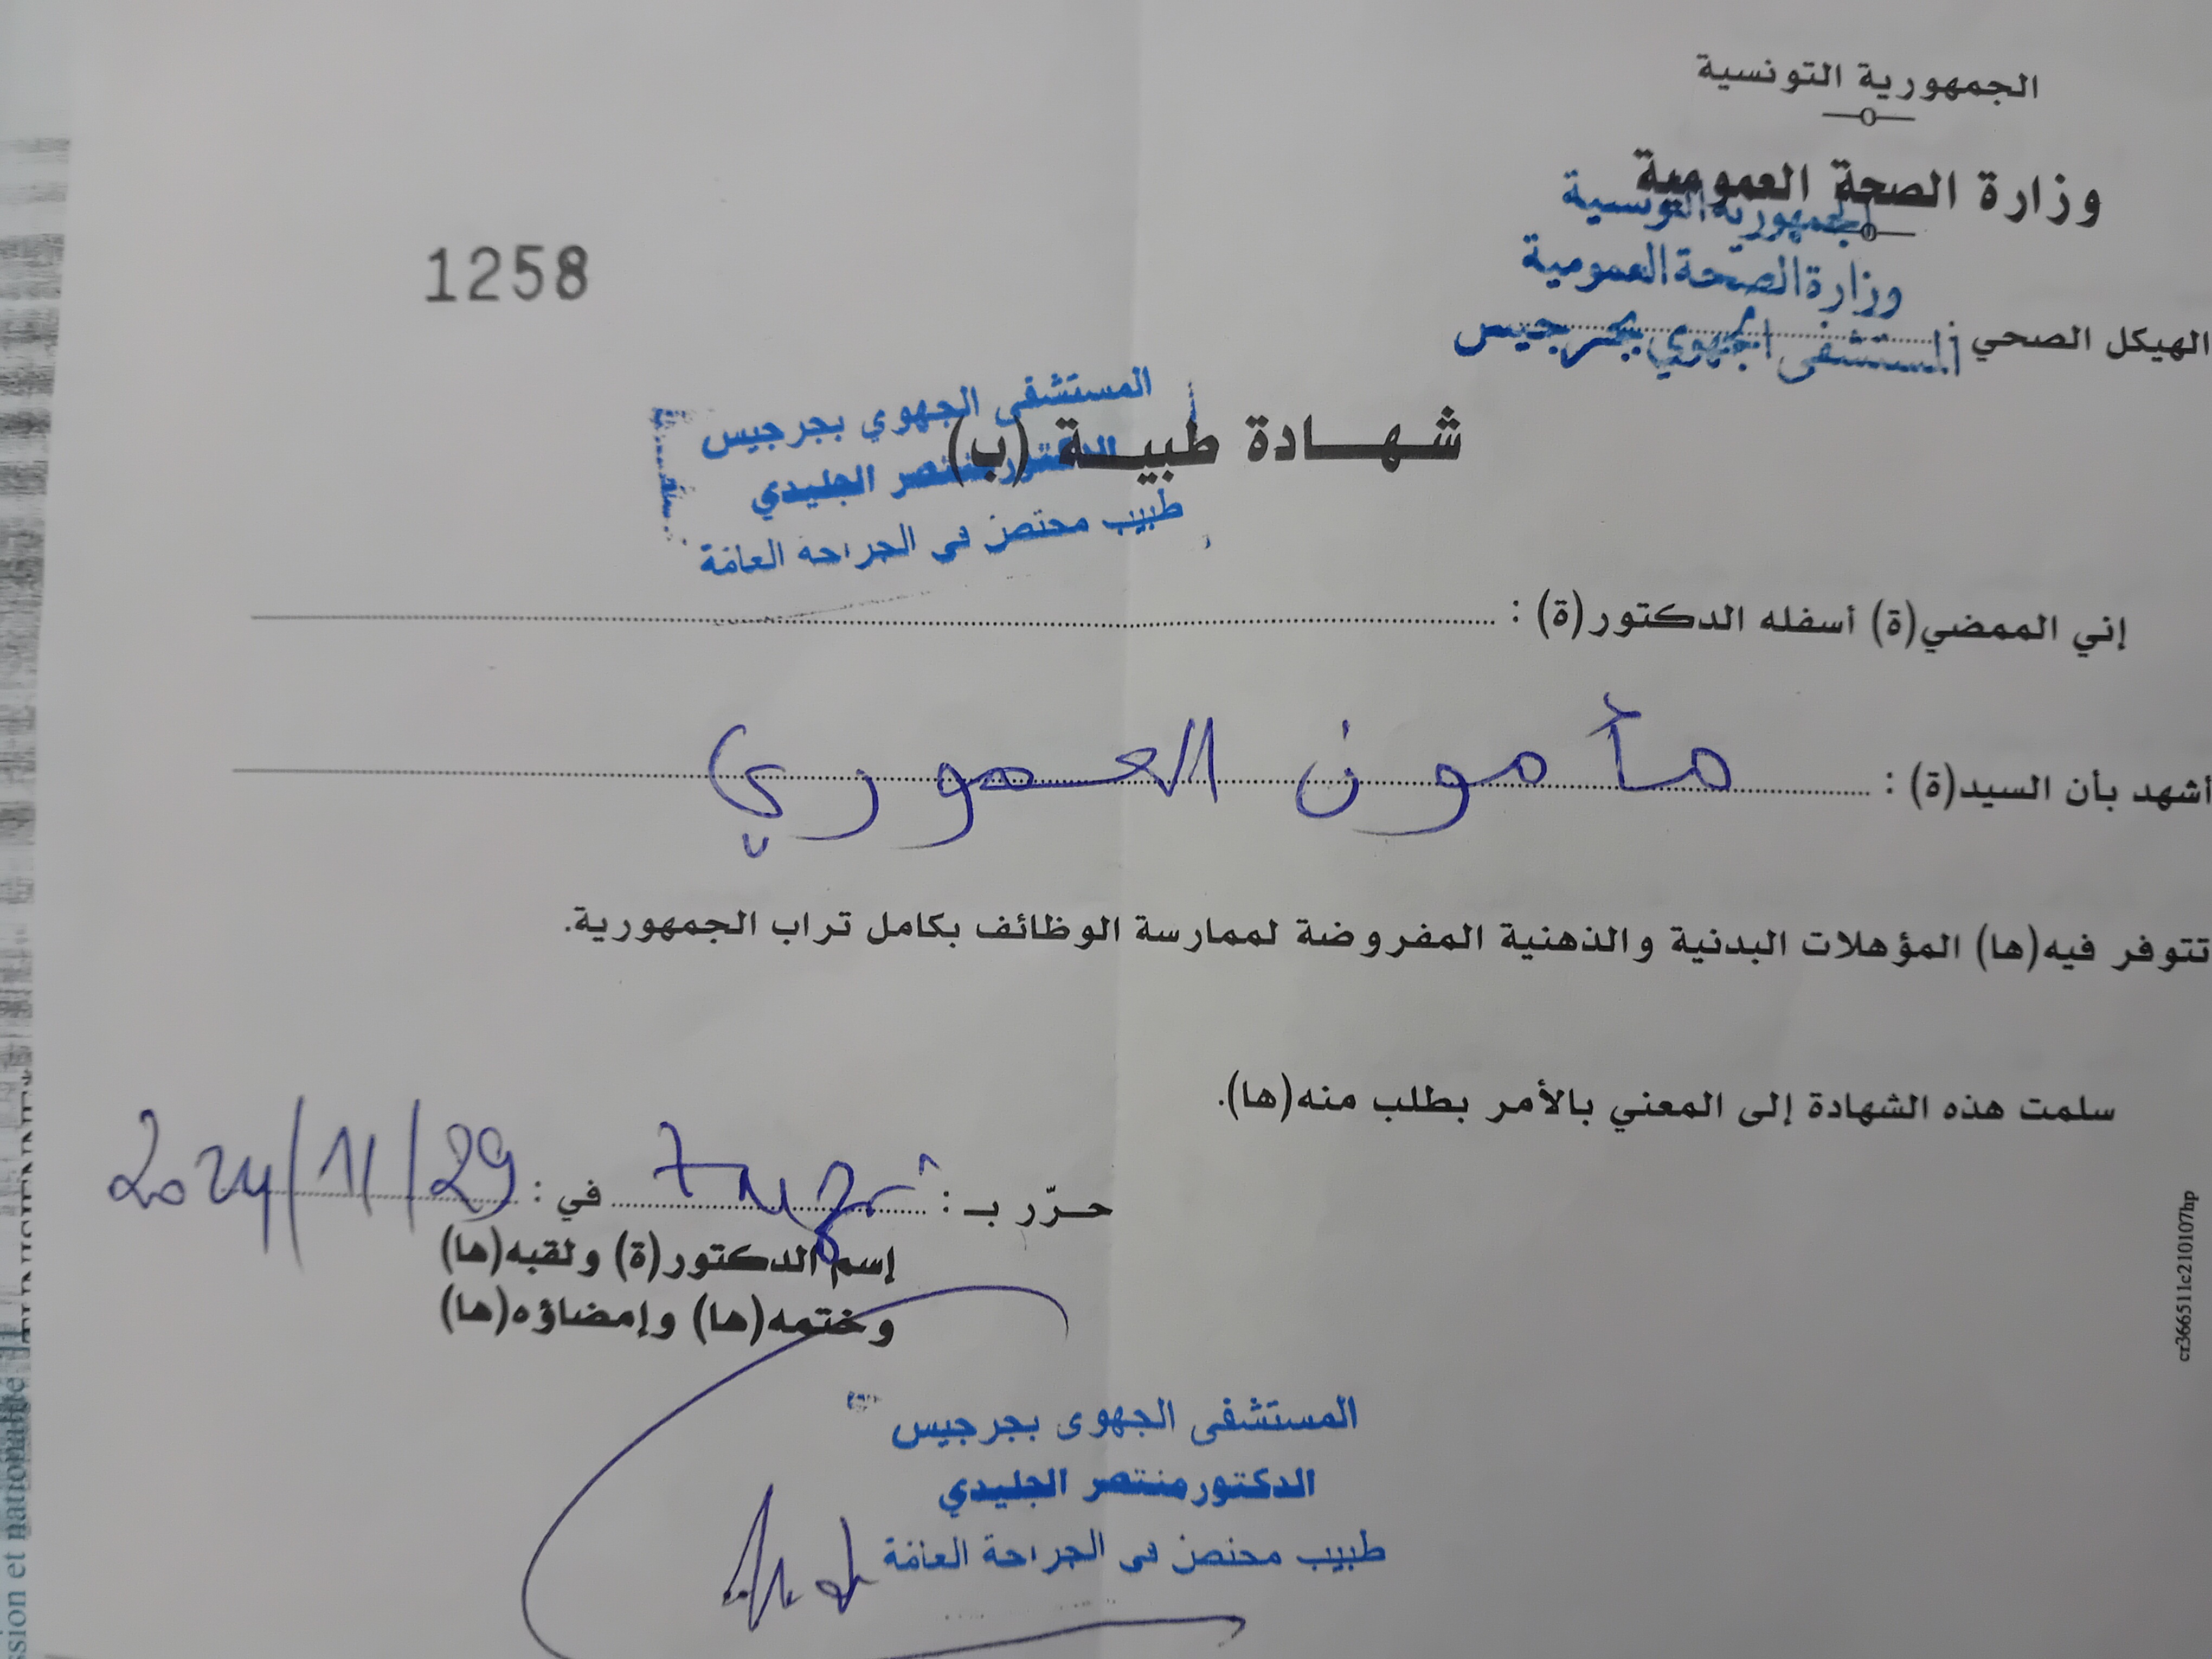 الجمهورية التونسية
وزارة الصحة العمومية
الجمهورية التونسية
وزارة الصحة العمومية
الهيكل الصحي المستشفى الجهوي بجرجيس
1258
شهــادة طبيــة (ب)
المستشفى الجهوي بجرجيس
الدكتور منتصر الجليدي
طبيب مختص في الجراحة العامة
إني الممضي(ة) أسفله الدكتور(ة) :
أشهد بأن السيد(ة) : مأمون العموري
تتوفر فيه(ها) المؤهلات البدنية والذهنية المفروضة لممارسة الوظائف بكامل تراب الجمهورية.
سلمت هذه الشهادة إلى المعني بالأمر بطلب منه(ها).
حـرّر بـ : في : 2024/11/29
إسم الدكتور(ة) ولقبه(ها)
وختمه(ها) وإمضاؤه(ها)
المستشفى الجهوى بجرجيس
الدكتور منتصر الجليدي
طبيب مختص في الجراحة العامة
cr366511c210107hp
ssion et nationalité